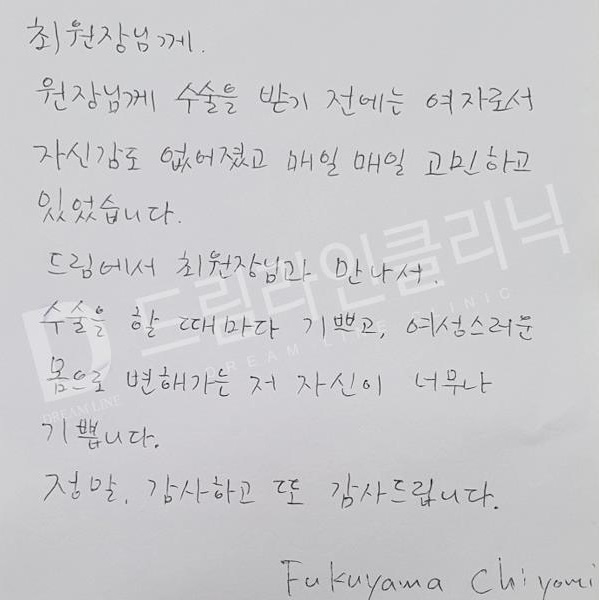 최원장님께.
원장님께 수술을 받기 전에는 여자로서
자신감도 없어졌고 매일 매일 고민하고
있었습니다.
드림에서 최원장님과 만나서.
수술을 할 때마다 기쁘고, 여성스러운
몸으로 변해가는 저 자신이 너무나
기쁩니다.
정말, 감사하고 또 감사드립니다.
Fukuyama Chiyomi
드림라인클리닉
DREAM LINE CLINIC
DREAM LINE